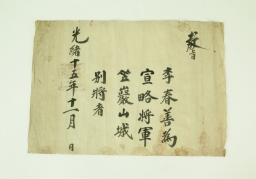 教旨
李春善為
宣略將軍
笠巖山城
別將者
光緒十五年十二月 日